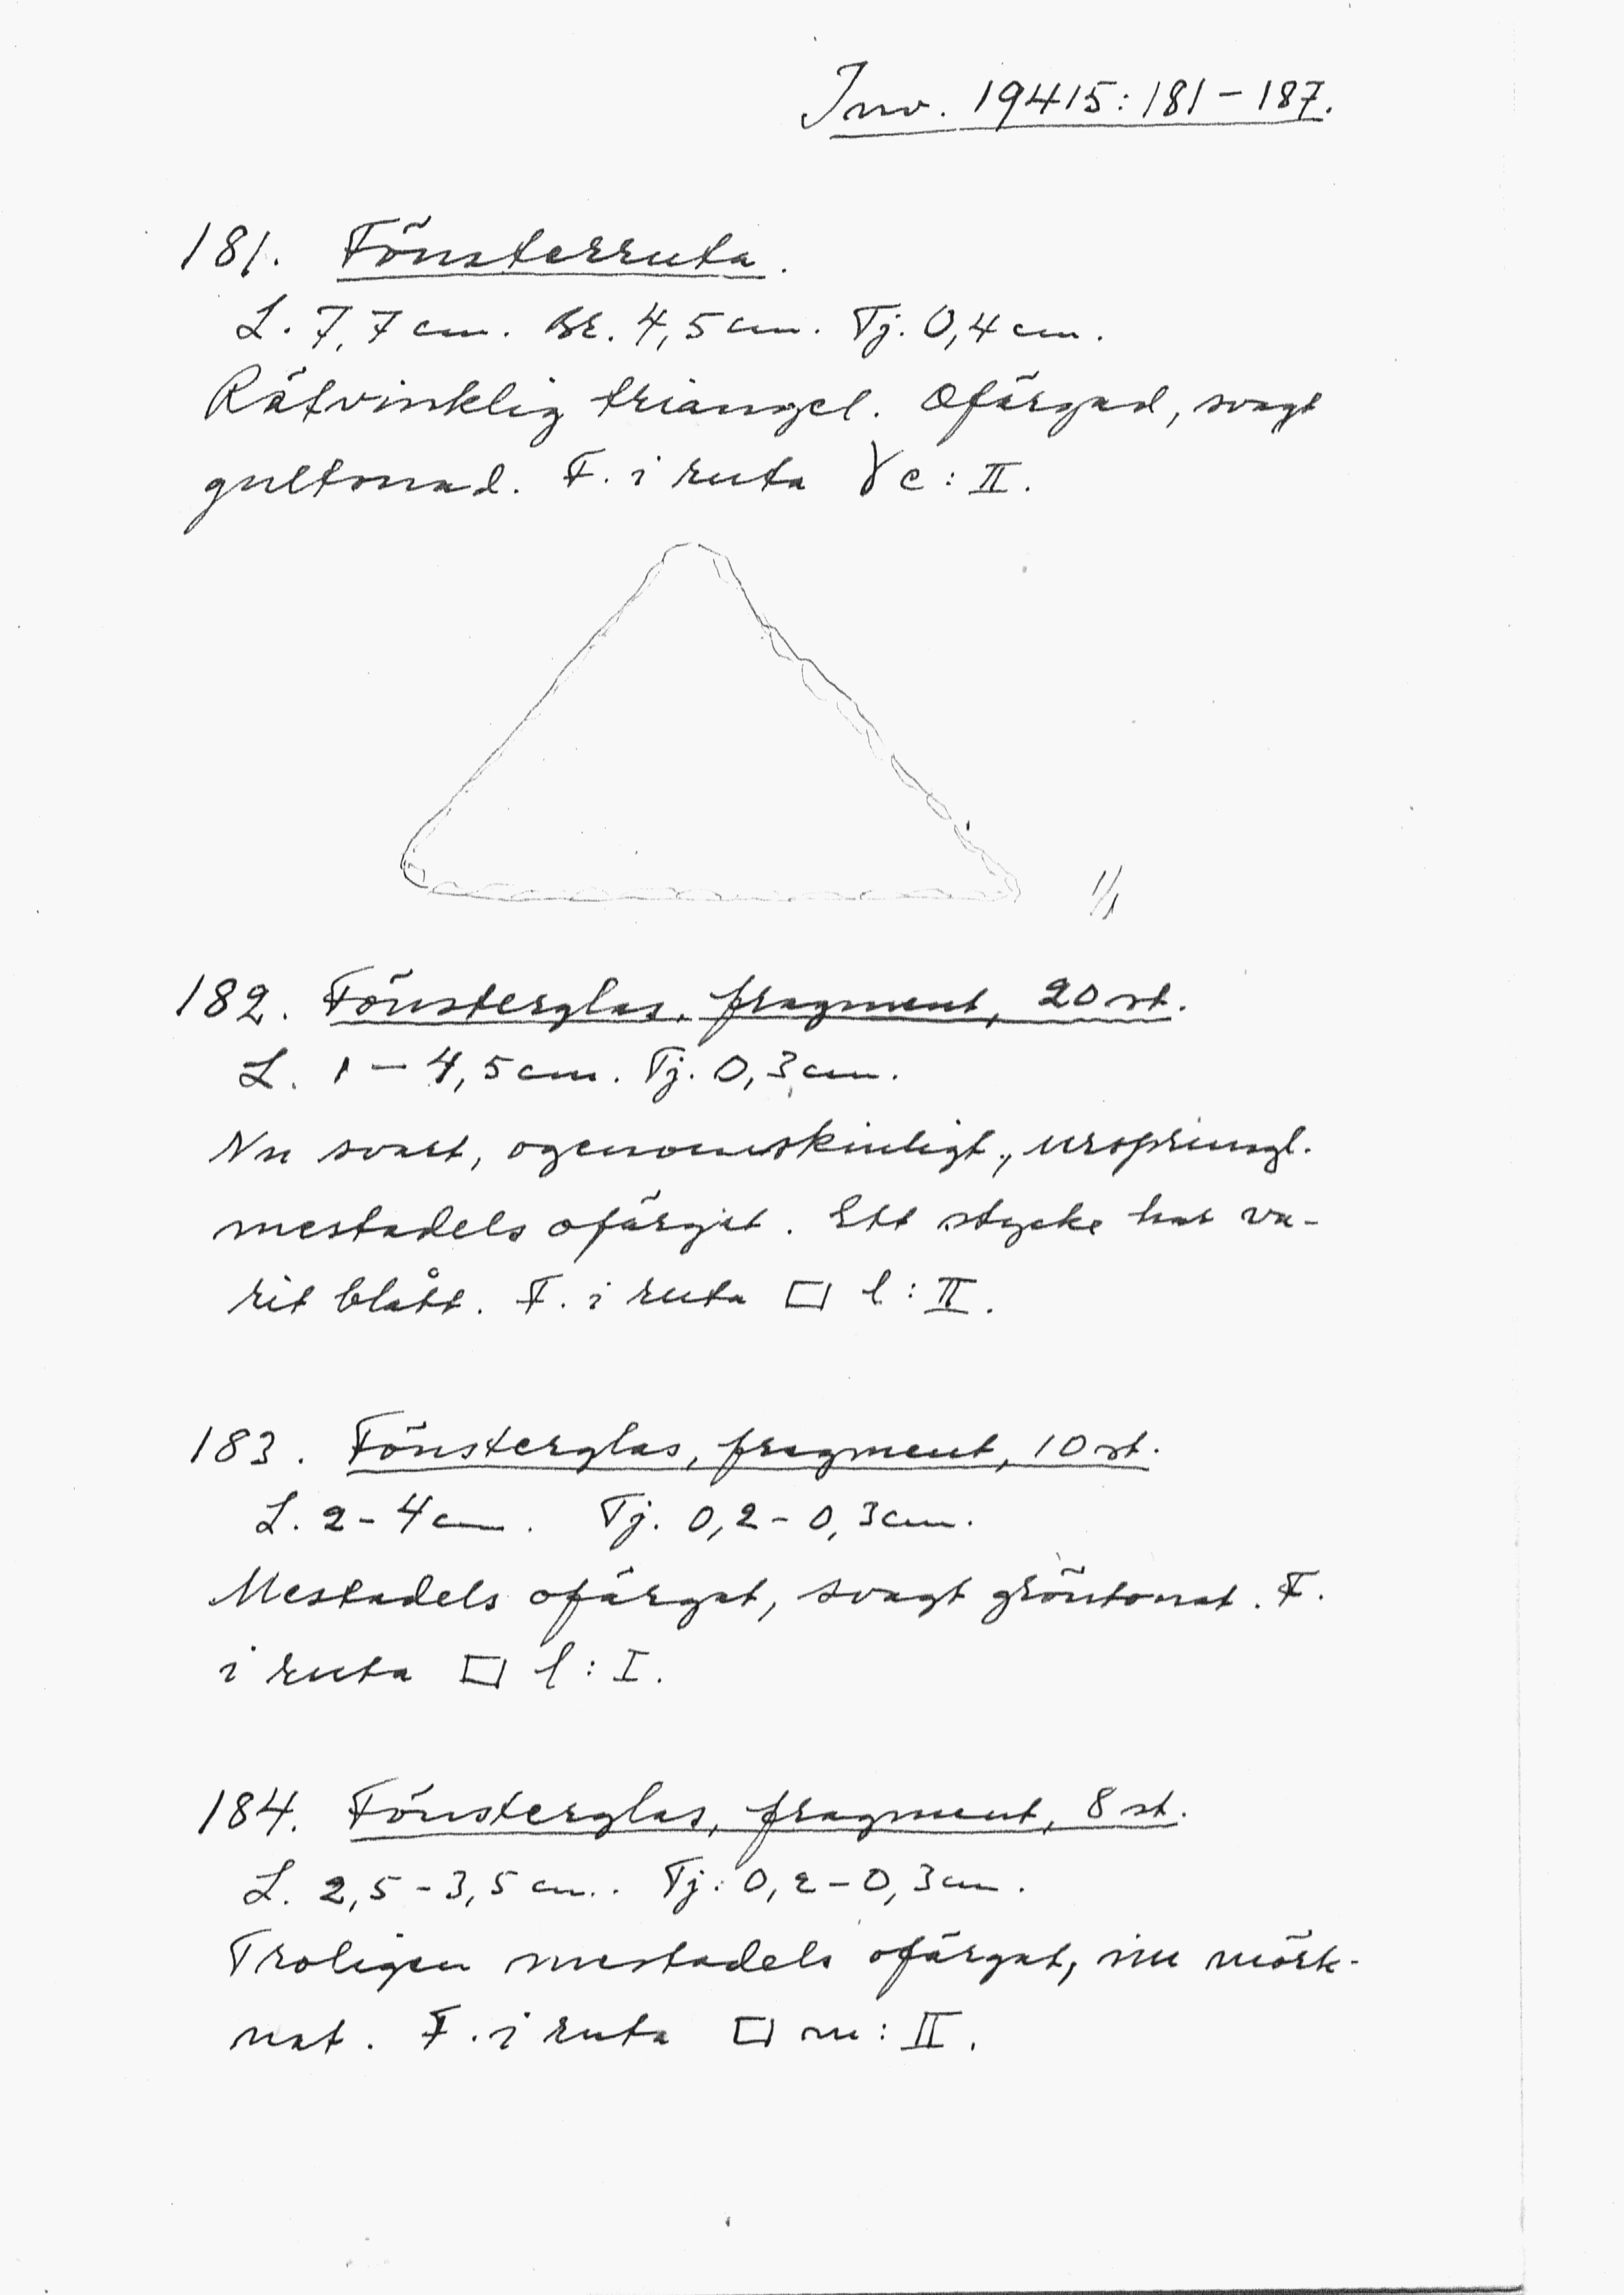 Inv. 19415:181-187.
181. Fönsterruta.
L. 7,7 cm. Br. 4,5 cm. Tj. 0,4 cm.
Rätvinklig triangel. Ofärgad, svagt
gultonad. F. i ruta γ c : II.
1/1
182. Fönsterglas, fragment, 20 st.
L. 1 - 4,5 cm. Tj. 0,3 cm.
Nu svart, ogenomskinligt, ursprungl.
mestadels ofärgat. Ett stycke har va-
rit blått. F. i ruta □ l : II.
183. Fönsterglas, fragment, 10 st.
L. 2 - 4 cm. Tj. 0,2 - 0,3 cm.
Mestadels ofärgat, svagt gröntonat. F.
i ruta □ l : I.
184. Fönsterglas, fragment, 8 st.
L. 2,5 - 3,5 cm. Tj. 0,2 - 0,3 cm.
Troligen mestadels ofärgat, nu mörk-
nat. F. i ruta □ m : II.